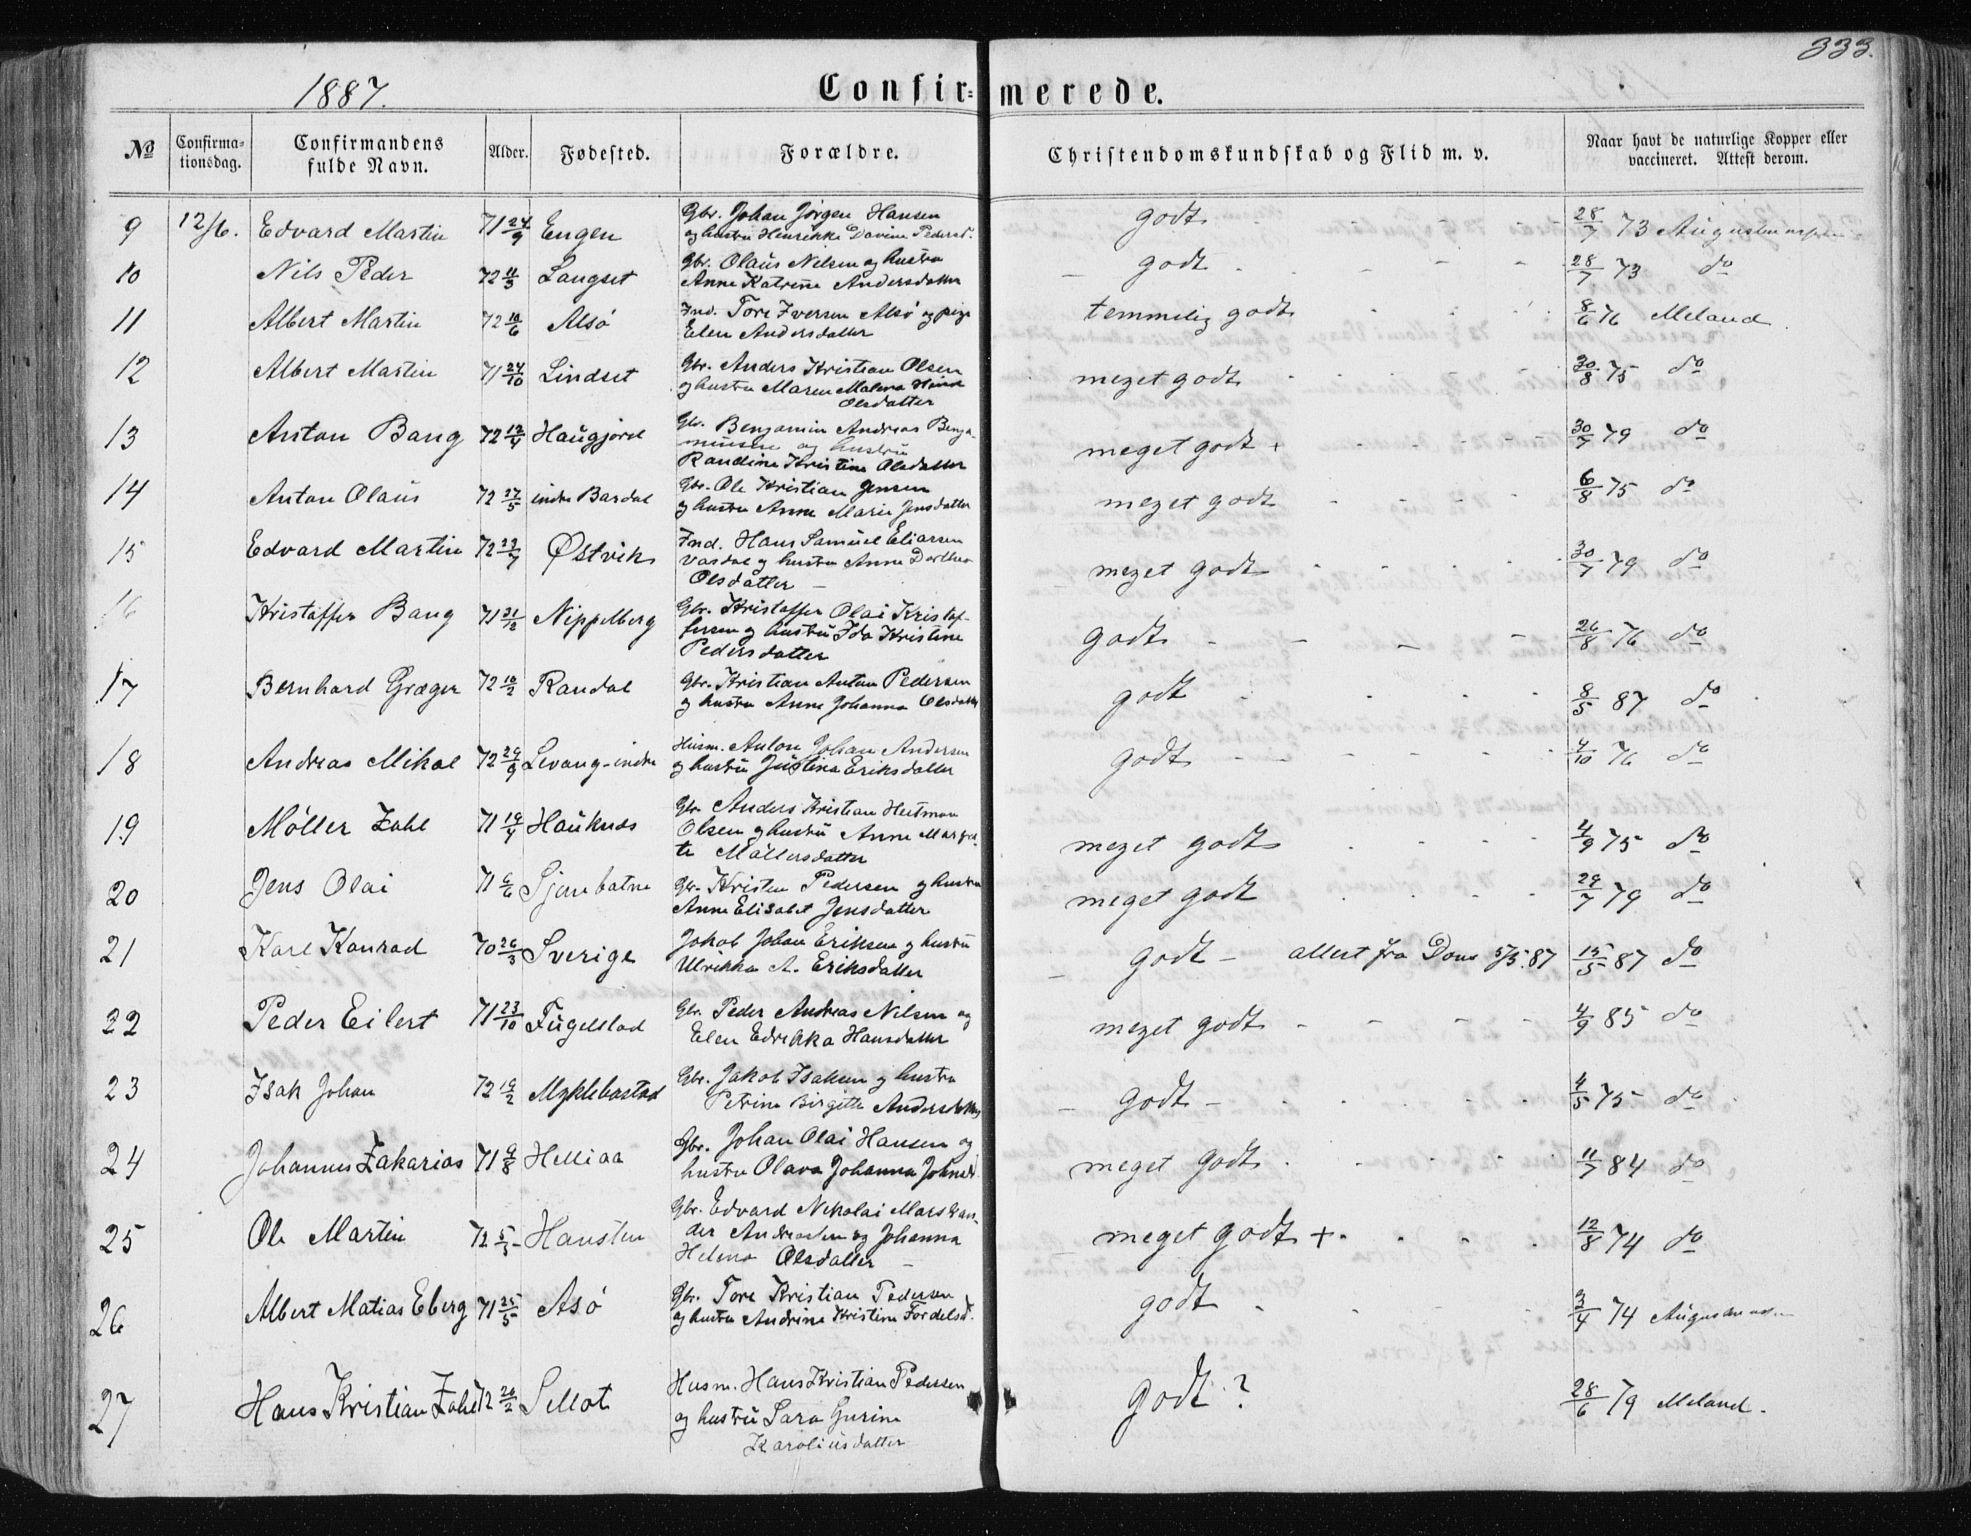 333.
1887.
Confir= merede.
№ Confirma-tionsdag. Confirmandens fulde Navn. Alder. Fødested. Forældre. Christendomskundskab og Flid m. v. Naar havt de naturlige Kopper eller vaccineret. Attest derom.
9 12/6. Edvard Martin 71 24/9 Engen Gbr. Johan Jörgen Hansen godt 28/7 73
og hustru Henrikke Davine Pedersd.
10 Nils Peder 72 11/3 Langset Gbr. Olaus Nelsen og hustru godt 28/7 73 do
Anne Katrine Andersdatter
11 Albert Martin 72 10/6 Alsö Ind. Tore Iversen Alsö og pige temmelig godt 8/6 76 Meland.
Elen Andersdatter
12 Albert Martin 71 24/10 Lindset Gbr. Anders Kristian Olsen meget godt 30/8 75 do
og hustru Maren Malena
Olsdatter
13 Anton Bang 72 12/4 Haugjord Gbr. Benjamin Andreas Benja- meget godt + 30/7 79 do
minsen og hustru
Randine Kristine Olsdatter
14 Anton Olaus 72 27/5 indre Bardal Gbr. Ole Kristian Jensen meget godt 6/8 75 do
og hustru Anne Marie Jensdatter
15 Edvard Martin 72 22/7 Østvik Ind. Hans Samuel Eliassen meget godt 30/7 79 do
Vasdal og hustru Anne Dorthea
Olsdatter
16 Kristoffer Bang 71 21/12 Nippelberg Gbr. Kristoffer Olai Kristof- godt 26/8 76 do
fersen og hustru Ida Kristine
Pedersdatter
17 Bernhard Græger 72 10/2 Randal Gbr. Kristian Anton Pedersen godt 8/5 87 do
og hustru Anne Johanna Olsdatter
18 Andreas Mikal 72 29/9 Levang-indre Husm. Anton Johan Andersen godt 4/10 76 do
og hustru Justina Eriksdatter
19 Möller Zahl 71 19/4 Hauknes Gbr. Anders Kristian Heitman meget godt 4/9 75 do
Olsen og hustru Anne Margre-
te Möllersdatter
20 Jens Olai 71 6/6 Sjonbotne Gbr. Kristen Pedersen og hustru meget godt 29/7 79 do
Anne Elisabet Jensdatter
21 Karl Konrad 70 26/3 Sverige Jakob Johan Eriksen og hustru godt attest fra Dons 5/5.87 15/5 87 do
Ulrikka A. Eriksdatter
22 Peder Eilert 71 23/10 Fugelstad Gbr. Peder Andreas Nilsen og meget godt 4/9 85 do
Elen Edrikka Hansdatter
23 Isak Johan 72 19/2 Myklebostad Gbr. Jakob Isaksen og hustru godt 4/5 75 do
Petrine Birgitte Andersdatter
24 Johannes Zakarias 71 9/8 Helliaa Gbr. Johan Olai Hansen og meget godt 11/7 84 do
hustru Olava Johanna Johnsd.
25 Ole Martin 72 5/3 Hansten Gbr. Edvard Nikolai Mars meget godt + 12/8 74 do
der Andreassen og Johanna
Helena Olsdatter
26 Albert Matias Eberg 71 25/5 Asö Gbr. Tore Kristian Pedersen godt 3/4 74
og hustru Andrine Kristine Fordelsd.
27 Hans Kristian Zahl 72 26/2 Sellot Husm. Hans Kristian Pedersen godt ? 28/6 79 Meland.
og hustru Sara Gurine
Karoliusdatter